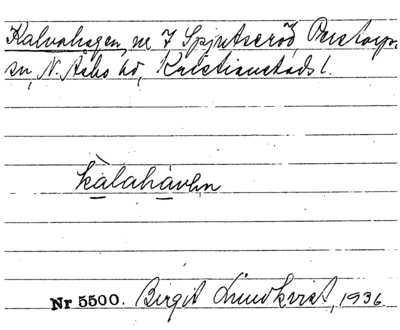 Kalvahagen, nr 7 Spjutseröd, Perstorps
sn, N. Åsbo hd, Kristianstads l.
kàlahávhn
Nr 5500. Birgit Lundkvist, 1936.